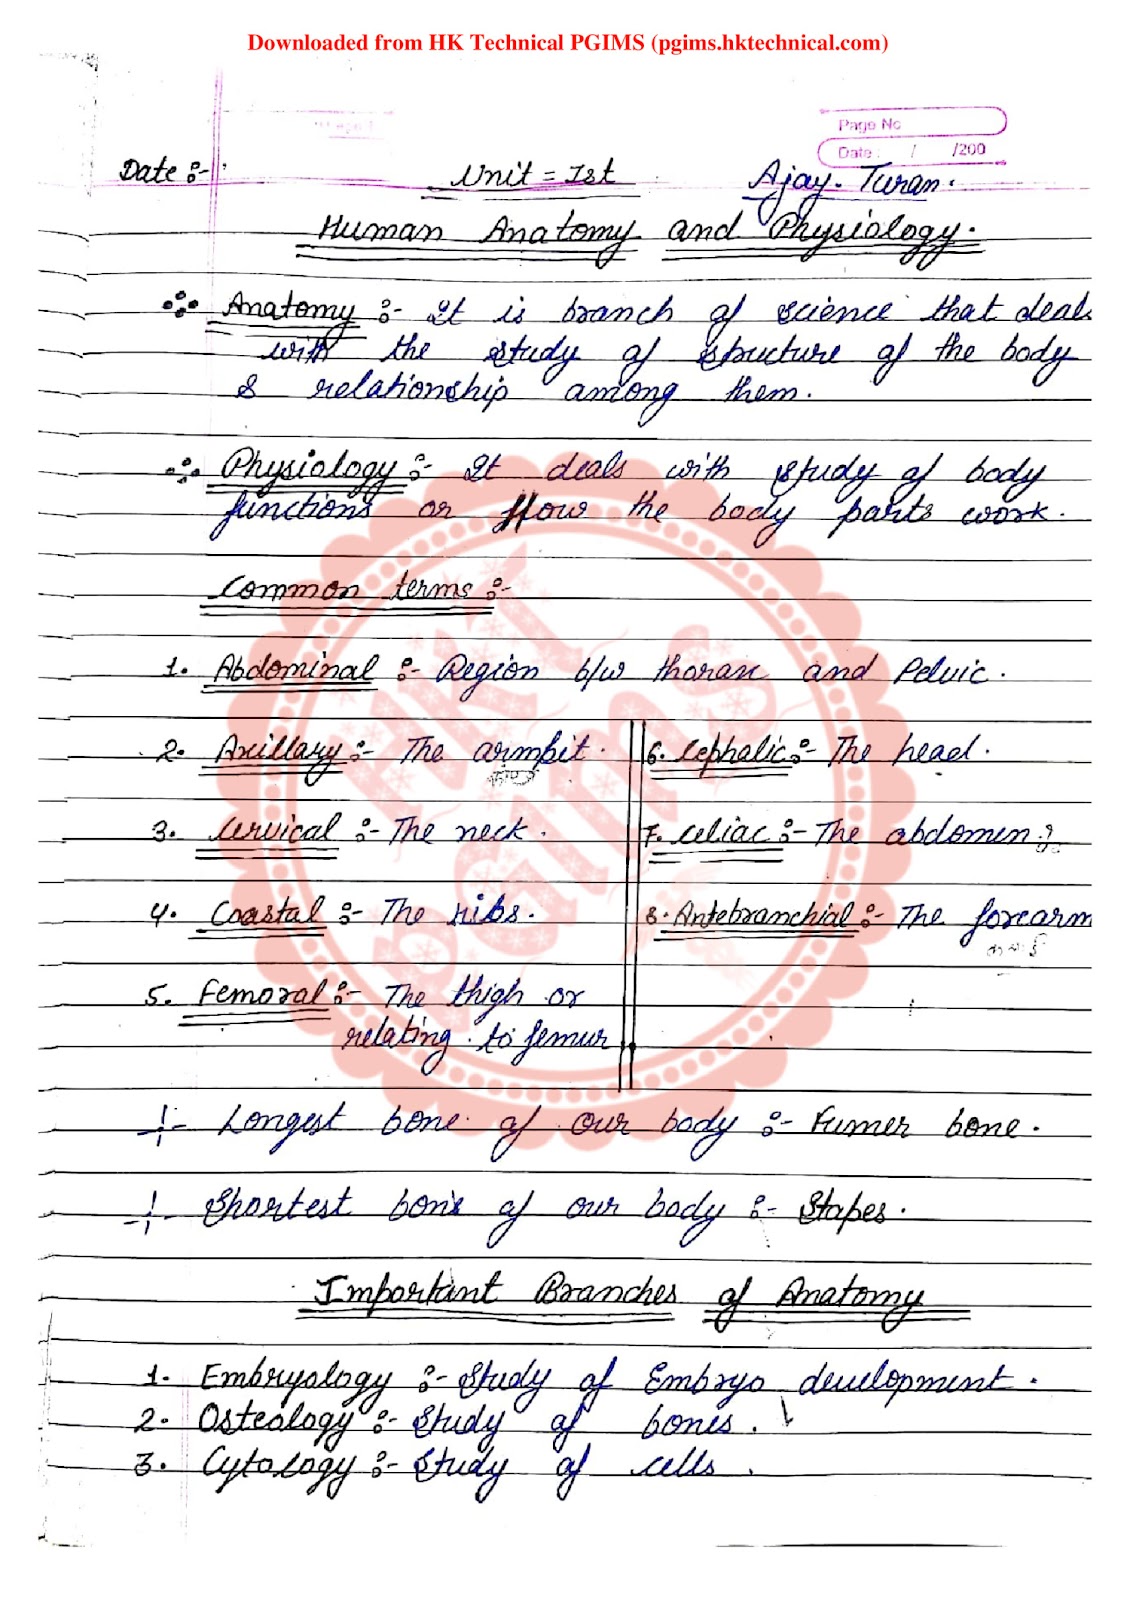 Downloaded from HK Technical PGIMS (pgims.hktechnical.com)
Page No
Date : / /200
Date :- Unit = Ist Ajay. Turan.
Human Anatomy and Physiology.
Anatomy :- It is branch of science that deals
with the study of structure of the body
& relationship among them.
Physiology :- It deals with study of body
functions or How the body parts work.
Common terms :-
1. Abdominal :- Region b/w thorax and Pelvic.
2. Axillary :- The armpit.
3. Cervical :- The neck.
4. Coastal :- The ribs.
5. Femoral :- The thigh or
relating to femur
6. Cephalic :- The head.
7. Celiac :- The abdomen
8. Antebranchial :- The forearm
Longest bone of our body :- Fumer bone.
Shortest bone of our body :- Stapes.
Important Branches of Anatomy
1. Embryology :- Study of Embryo development.
2. Osteology :- Study of bones.
3. Cytology :- Study of cells.
HK
PGIMS